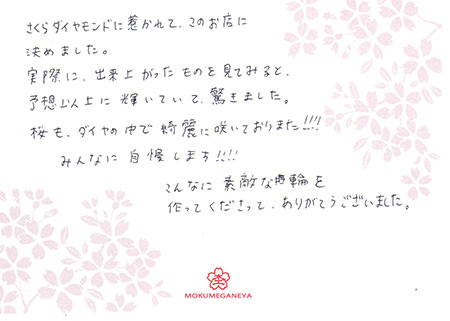 さくらダイヤモンドに惹かれて、このお店に
決めました。
実際に、出来上がったものを見てみると、
予想以上に輝いていて、驚きました。
桜も、ダイヤの中で綺麗に咲いておりました!!!!
みんなに自慢します!!!!
こんなに素敵な指輪を
作ってくださって、ありがとうございました。
MOKUMEGANEYA